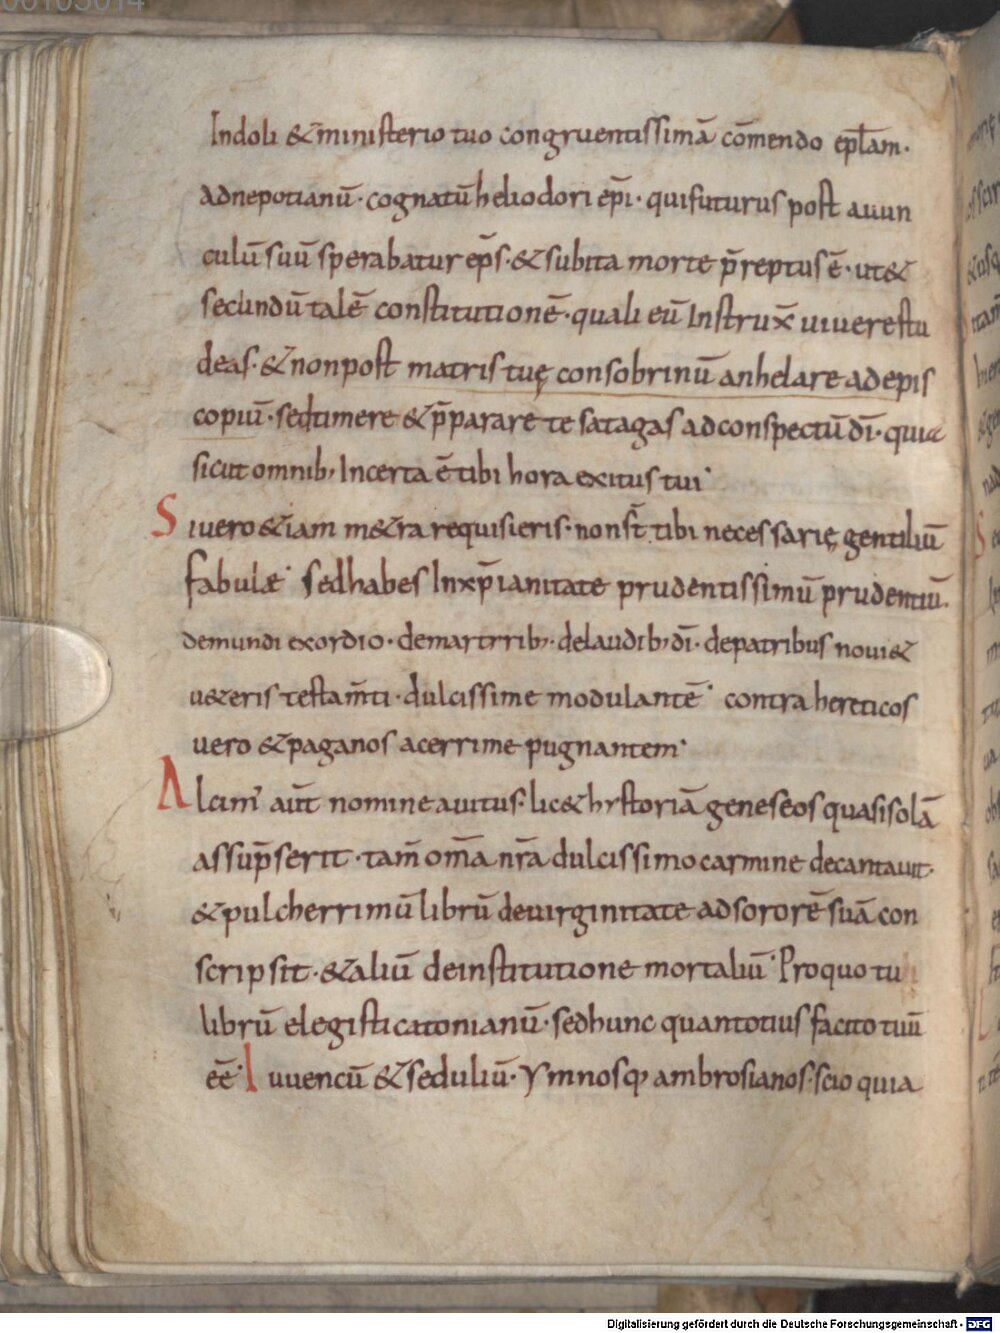 00103014
Indoli & ministerio tuo congruentissimā cōmendo ep̄lam·
adnepotianū· cognatū heliodori ep̄i· quifuturus post auun
culū suū sperabatur ep̄s· & subita morte p̄reptus ē· ut &
secundū talē constitutionē· quali eū Instrux̄ uiuere stu
deas· & nonpost matris tuę consobrinū anhelare ad epis
copiū· sed timere & p̄parare te satagas ad conspectū dī· quia
sicut omnib; Incerta ē tibi hora exitus tui·
Siuero &iam m&ra requisieris· non st̄ tibi necessarię gentiliū
fabulæ· Sed habes In xp̄ianitate prudentissimū prudentiū·
demundi exordio· demartyrib; delaudib; dī· depatribus noui &
u&eris testam̄ti· dulcissime modulantē· contra hereticos
uero & paganos acerrime pugnantem·
Alcim' aūt nomine auitus· lic& hystoriā geneseos quasi solā
assūpserit· tam̄ om̄a nr̄a dulcissimo carmine decantauit·
& pulcherrimū librū deuirginitate ad sororē suā con
scripsit· & aliū deinstitutione mortaliū· Pro quo tu
librū elegisti catonianū· sed hunc quantotius facito tuū
eē· Iuuencū & seduliū· Ymnosq; ambrosianos· scio quia
Digitalisierung gefördert durch die Deutsche Forschungsgemeinschaft - DFG